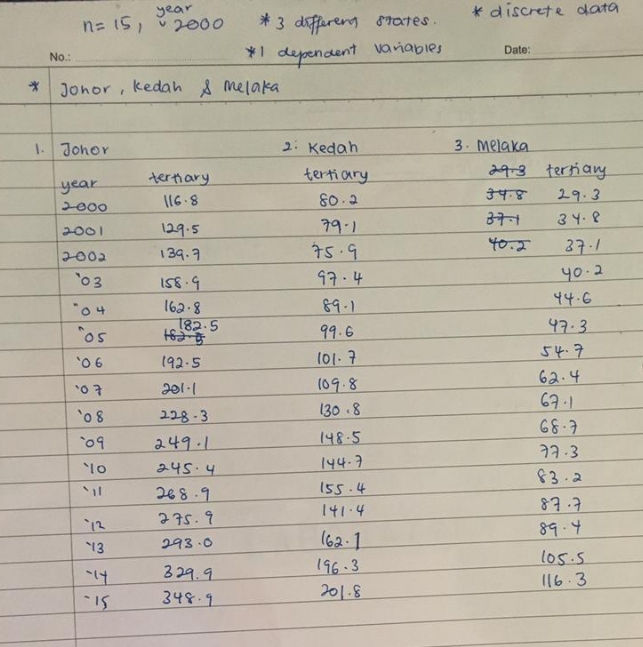 year
n= 15, ˅ 2000 * 3 different states. * discrete data
*1 dependent variables
No.: Date:
* Johor, Kedah & Melaka
1. Johor 2: Kedah 3. Melaka
year tertiary tertiary 29.3 tertiary
2000 116.8 80.2 34.8 29.3
2001 129.5 79.1 37.1 34.8
2002 139.7 75.9 40.2 37.1
'03 158.9 97.4 40.2
'04 162.8 89.1 44.6
'05 182.5 99.6 47.3
'06 192.5 101.7 54.7
'07 201.1 109.8 62.4
'08 228.3 130.8 67.1
'09 249.1 148.5 68.7
'10 245.4 144.7 77.3
'11 268.9 155.4 83.2
'12 275.9 141.4 87.7
'13 293.0 162.1 89.4
'14 329.9 196.3 105.5
'15 348.9 201.8 116.3